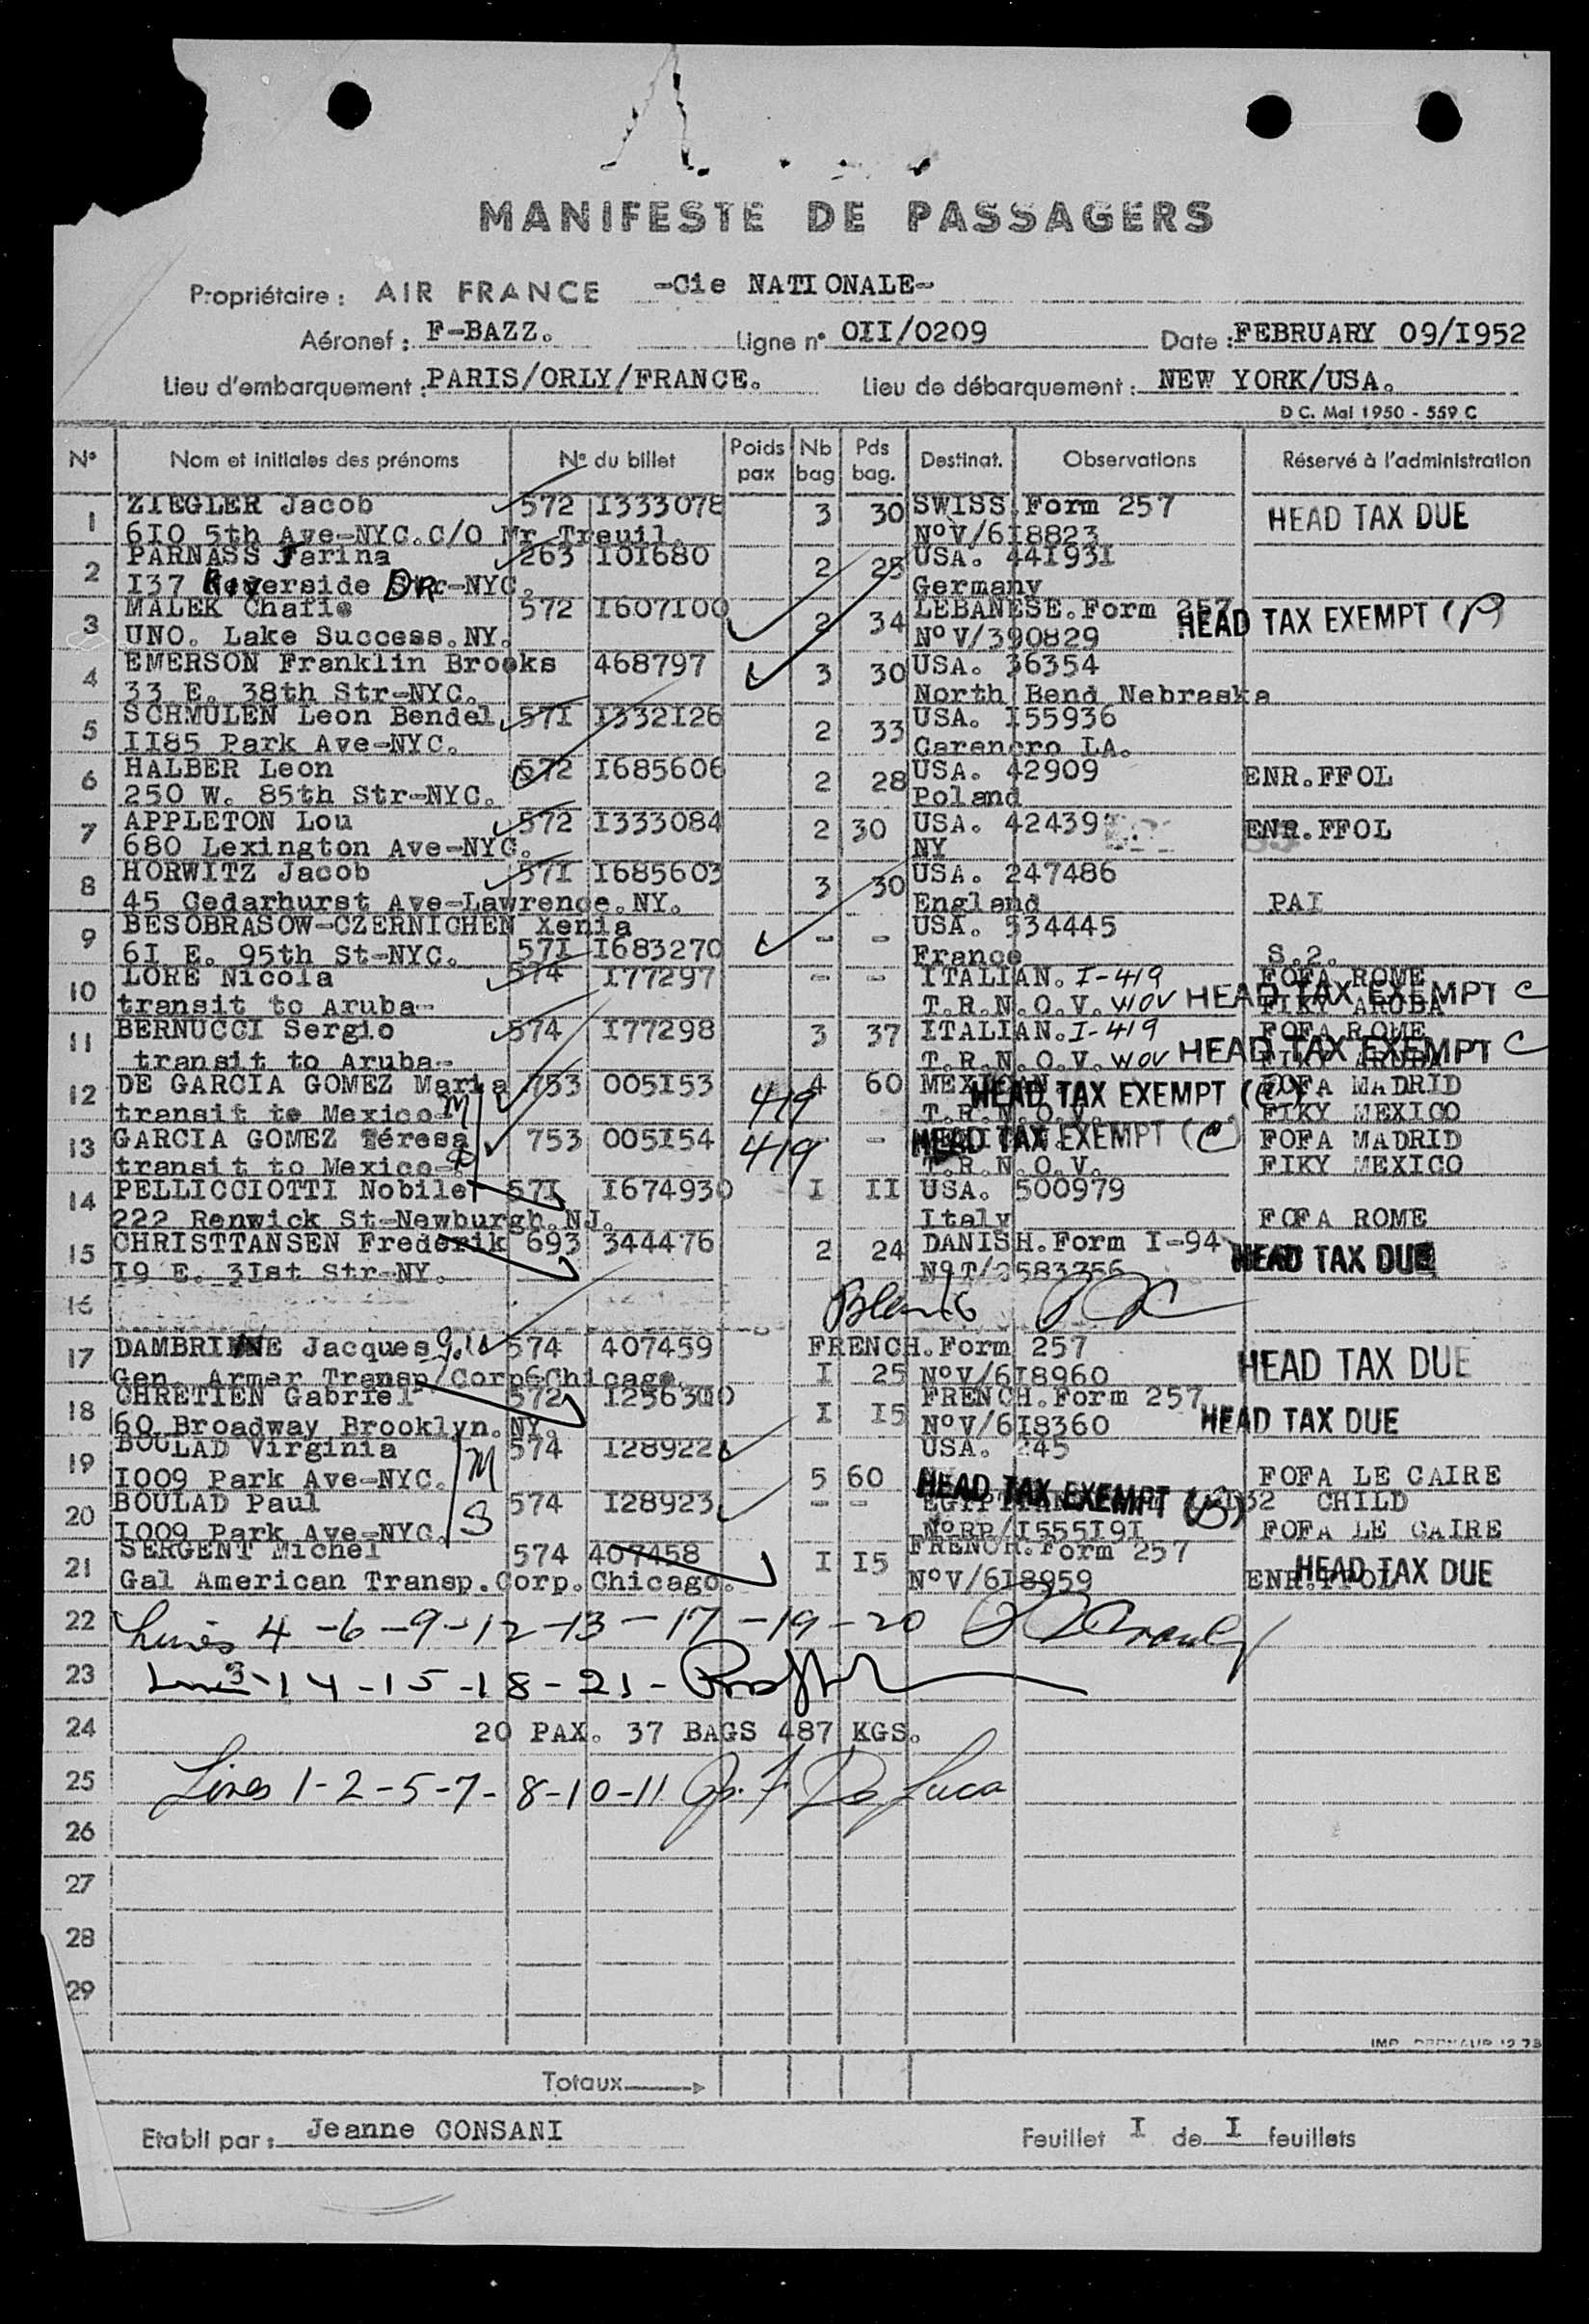 MANIFESTE DE PASSAGERS
Propriétaire : AIR FRANCE -Cie NATIONALE-
Aéronef : F-BAZZ. Ligne n° OII/0209 Date : FEBRUARY 09/I952
Lieu d'embarquement : PARIS/ORLY/FRANCE. Lieu de débarquement : NEW YORK/USA.
D C. Mai 1950 - 559 C
N° Nom et initiales des prénoms N° du billet Poids pax Nb bag Pds bag. Destinat. Observations Réservé à l'administration
1 ZIEGLER Jacob 572 I333078 3 30 SWISS.Form 257 HEAD TAX DUE
6I0 5th Ave-NYC.C/O Mr Treuil. N°V/6I8823
2 PARNASS Jarina 263 I0I680 2 25 USA. 44I93I
I37 Riverside DR Str-NYC. Germany
3 MALEK Chafie 572 I607I00 2 34 LEBANESE.Form 257 HEAD TAX EXEMPT (P)
UNO. Lake Success.NY. N°V/390829
4 EMERSON Franklin Brooks 468797 3 30 USA. 36354
33 E. 38th Str-NYC. North Bend Nebraska
5 SCHMULEN Leon Bendel 57I I332I26 2 33 USA. I55936
II85 Park Ave-NYC. Carencro LA.
6 HALBER Leon 572 I685606 2 28 USA. 42909 ENR.FFOL
250 W. 85th Str-NYC. Poland
7 APPLETON Lou 572 I333084 2 30 USA. 42439 ENR.FFOL
680 Lexington Ave-NYC. NY
8 HORWITZ Jacob 57I I685603 3 30 USA. 247486
45 Cedarhurst Ave-Lawrence.NY. England PAI
9 BESOBRASOW-CZERNICHEN Xenia - - USA. 534445
6I E. 95th St-NYC. 57I I683270 France S.2.
10 LORE Nicola 574 I77297 - - ITALIAN. I-419 FOFA ROME
transit to Aruba- T.R.N.O.V. WOV HEAD TAX EXEMPT C FIKY ARUBA
11 BERNUCCI Sergio 574 I77298 3 37 ITALIAN. I-419 FOFA ROME
transit to Aruba- T.R.N.O.V. WOV HEAD TAX EXEMPT C FIKY ARUBA
12 DE GARCIA GOMEZ Maria 753 005I53 419 4 60 MEXICAN HEAD TAX EXEMPT (C) FOFA MADRID
transit to Mexico- M T.R.N.O.V. FIKY MEXICO
13 GARCIA GOMEZ Téresa 753 005I54 419 - - HEAD TAX EXEMPT (C) FOFA MADRID
transit to Mexico- T.R.N.O.V. FIKY MEXICO
14 PELLICCIOTTI Nobile 57I I674930 I II USA. 500979
222 Renwick St-Newburgh.NJ. Italy FOFA ROME
15 CHRISTTANSEN Frederik 693 344476 2 24 DANISH.Form I-94 HEAD TAX DUE
I9 E. 3Ist Str-NY. N°T/2583356
16 Blank
17 DAMBRINE Jacques 574 407459 FRENCH.Form 257 HEAD TAX DUE
Gen. Armer Transp/Corp-Chicago. I 25 N°V/6I8960
18 CHRETIEN Gabriel 572 I256300 I I5 FRENCH.Form 257 HEAD TAX DUE
60 Broadway Brooklyn.NY. N°V/6I8360
19 BOULAD Virginia 574 I28922 USA. 245
I009 Park Ave-NYC. M 5 60 FOFA LE CAIRE
20 BOULAD Paul 574 I28923 - - HEAD TAX EXEMPT CHILD
I009 Park Ave-NYC. S N°RP/I555I9I FOFA LE CAIRE
21 SERGENT Michel 574 407458 I I5 FRENCH.Form 257 HEAD TAX DUE
Gal American Transp.Corp.Chicago. N°V/6I8959 ENR.FFOL
22 Lines 4-6-9-12-13-17-19-20
23 Lines 3-14-15-18-21-
24 20 PAX. 37 BAGS 487 KGS.
25 Lines 1-2-5-7-8-10-11 De Luca
26
27
28
29
Totaux
Etabli par : Jeanne CONSANI Feuillet I de I feuillets